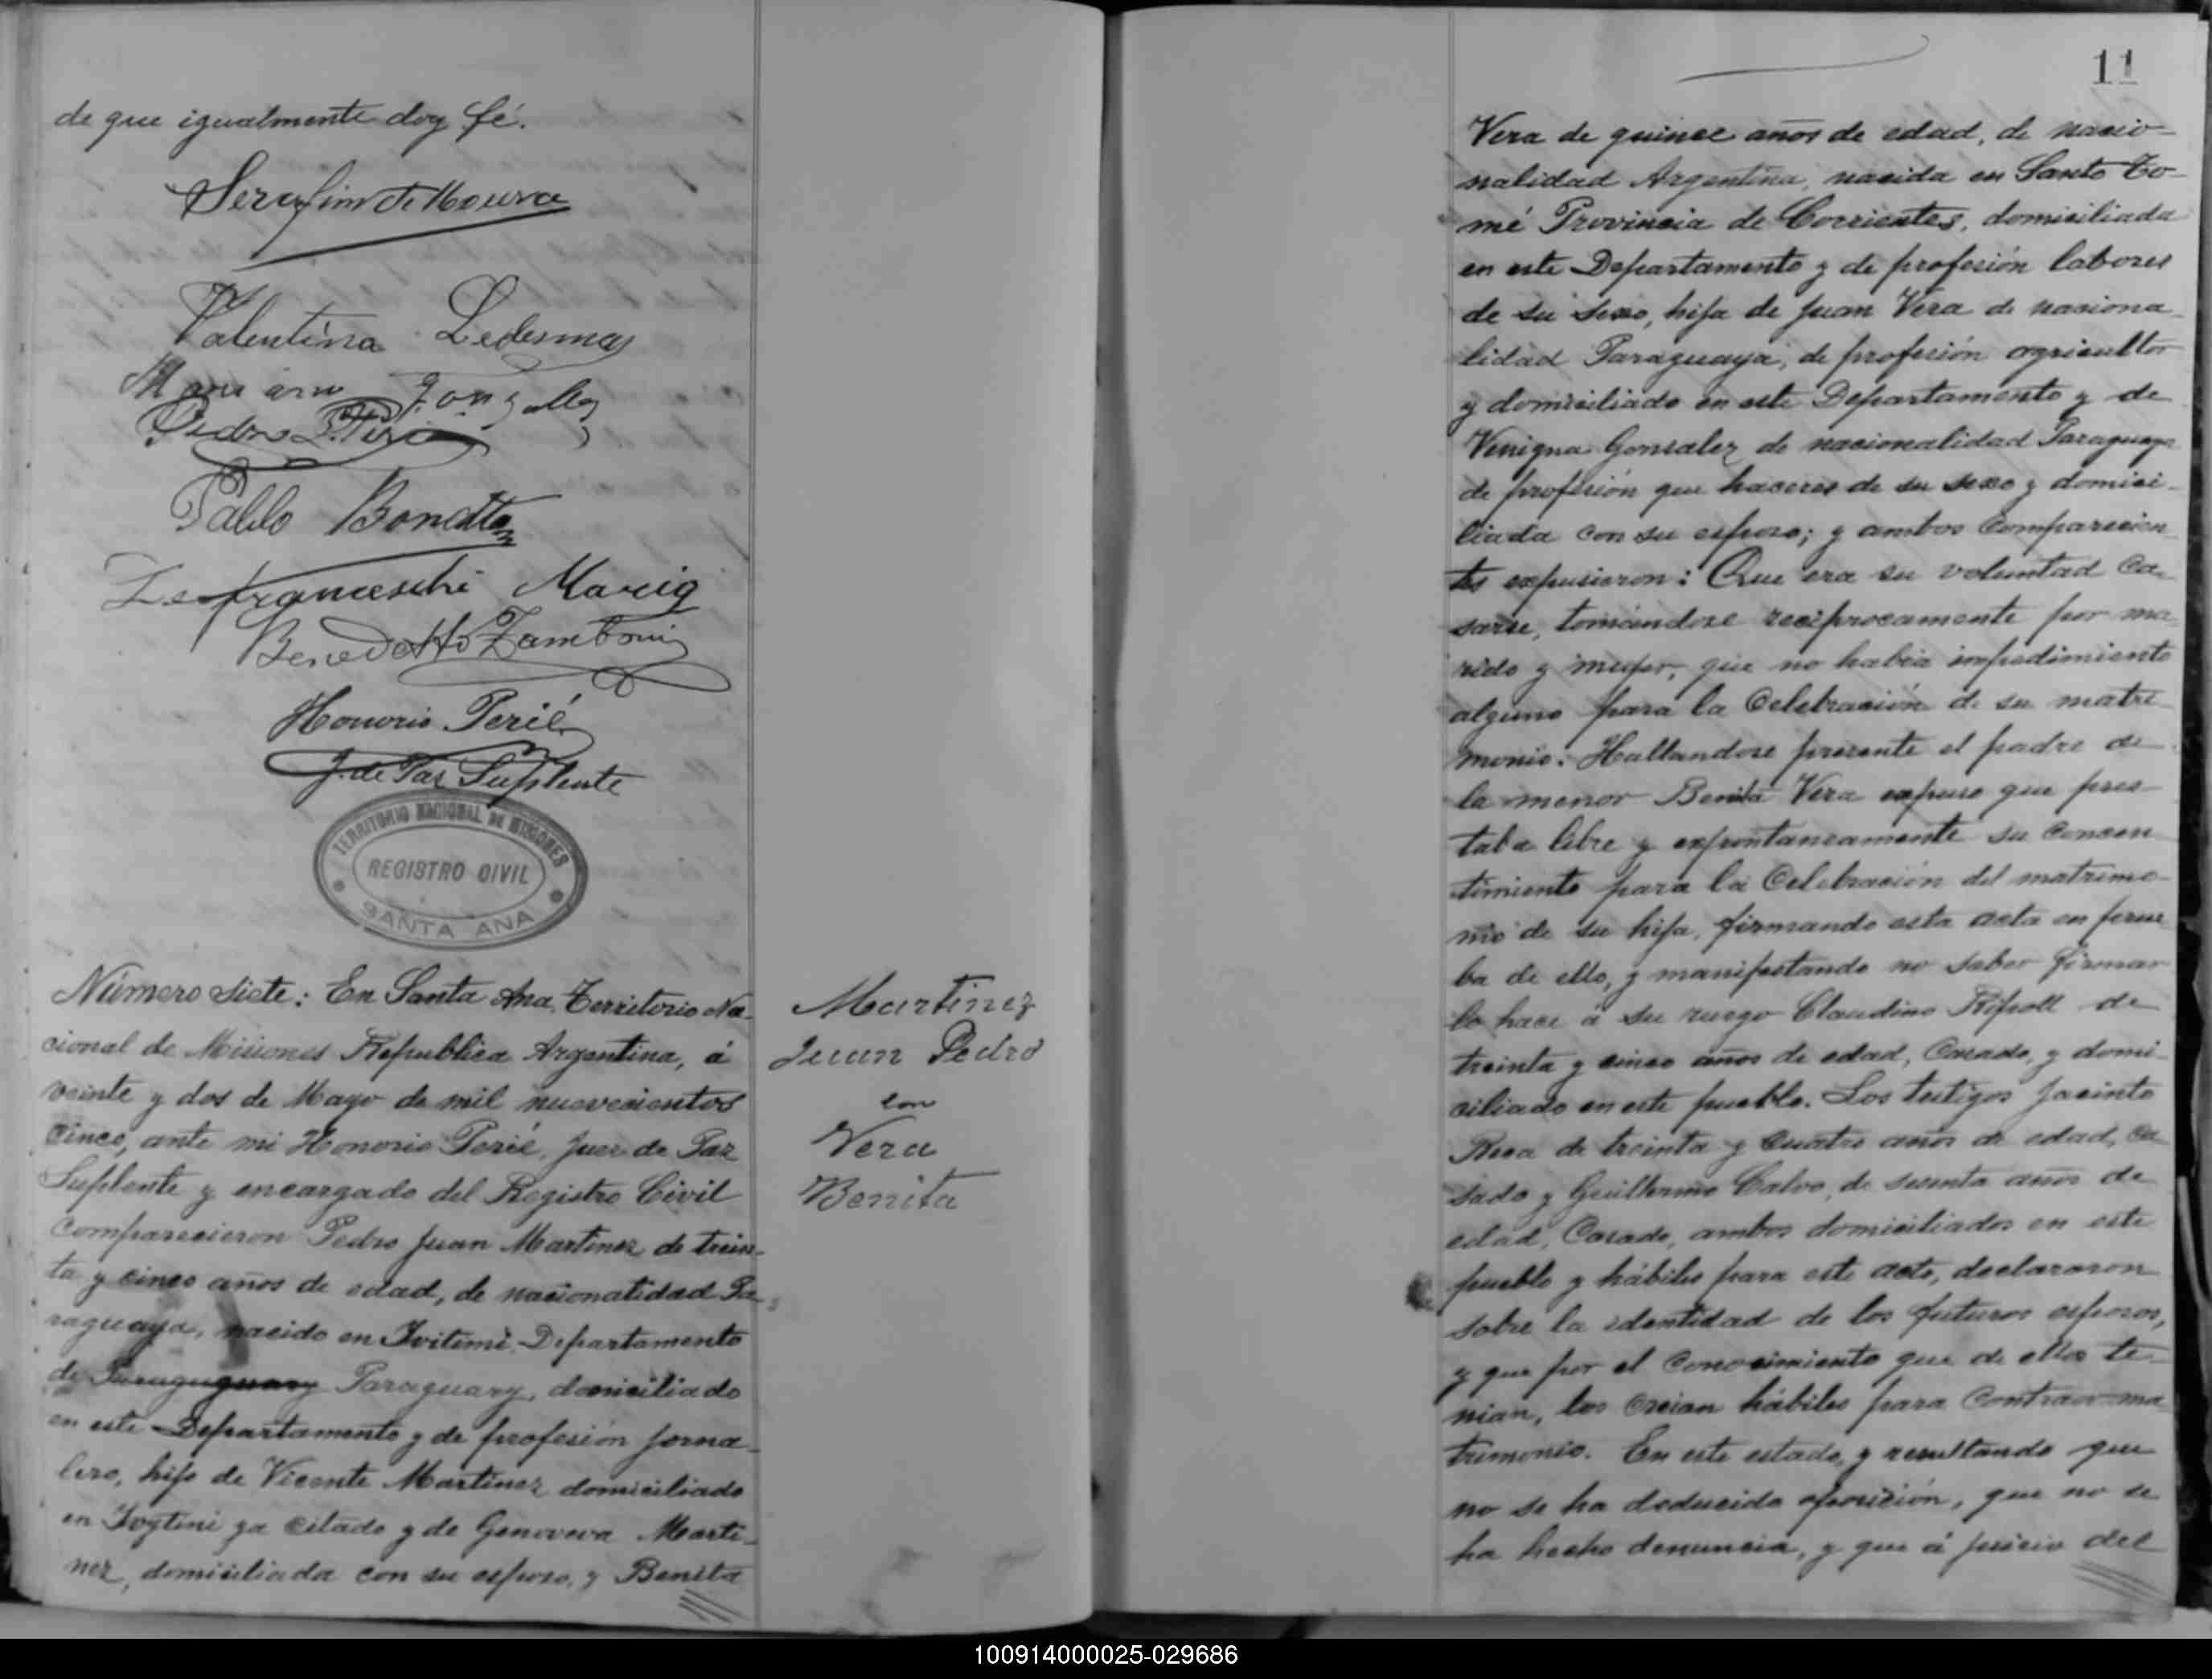 de que igualmente doy fé.
Serafin de Moura
Valentina Ledesma
Mariano Gonzalez
Pedro
Pablo Bonetto
Franceschi
Benedetto Zamboni
Honorio Perié
J. de Paz Suplente
TERRITORIO NACIONAL DE MISIONES
REGISTRO CIVIL
SANTA ANA
Número siete: En Santa Ana, Territorio Na-
cional de Misiones Republica Argentina, á
veinte y dos de Mayo de mil nuevecientos
cinco, ante mi Honorio Perié, Juez de Paz
Suplente y encargado del Registro Civil
comparecieron Pedro Juan Martinez de trein-
ta y cinco años de edad, de nacionalidad Pa-
raguaya, nacido en Ivitimi Departamento
de Paraguay, domiciliado
en este Departamento y de profesión jorna-
lero, hijo de Vicente Martinez domiciliado
en Ivytini ya citado y de Genoveva Marti-
nez, domiciliada con su esposo, y Benita
Martinez
Juan Pedro
con
Vera
Benita
11
Vera de quince años de edad, de nacio-
nalidad Argentina, nacida en Santo To-
mé Provincia de Corrientes, domiciliada
en este Departamento y de profesión labores
de su sexo, hija de Juan Vera de naciona-
lidad Paraguaya, de profesión agricultor
y domiciliado en este Departamento y de
Venigna Gonsalez de nacionalidad Paraguaya
de profesión que haceres de su sexo y domici-
liada con su esposo; y ambos comparecien-
tes expusieron: Que era su voluntad ca-
sarse, tomándose reciprocamente por ma-
rido y mujer, que no habia impedimiento
alguno para la celebración de su matri-
monio: Hallandose presente el padre de
la menor Benita Vera expuso que pres-
taba libre y expontaneamente su concen-
timiento para la celebración del matrimo-
nio de su hija, firmando esta acta en prue
ba de ello, y manifestando no saber firmar
lo hace á su ruego Claudino Ripoll de
treinta y cinco años de edad, casado, y domi-
ciliado en este pueblo. Los testigos Jacinto
Roca de treinta y cuatro años de edad, ca-
sado y Guillermo Calvo, de sesenta años de
edad, casado, ambos domiciliados en este
pueblo y hábiles para este acto, declararon
sobre la identidad de los futuros esposos,
y que por el conocimiento que de ellos te-
nian, los creian hábiles para contraer ma-
trimonio. En este estado, y resultando que
no se ha deducido oposición, que no se
ha hecho denuncia, y que á juicio del
100914000025-029686